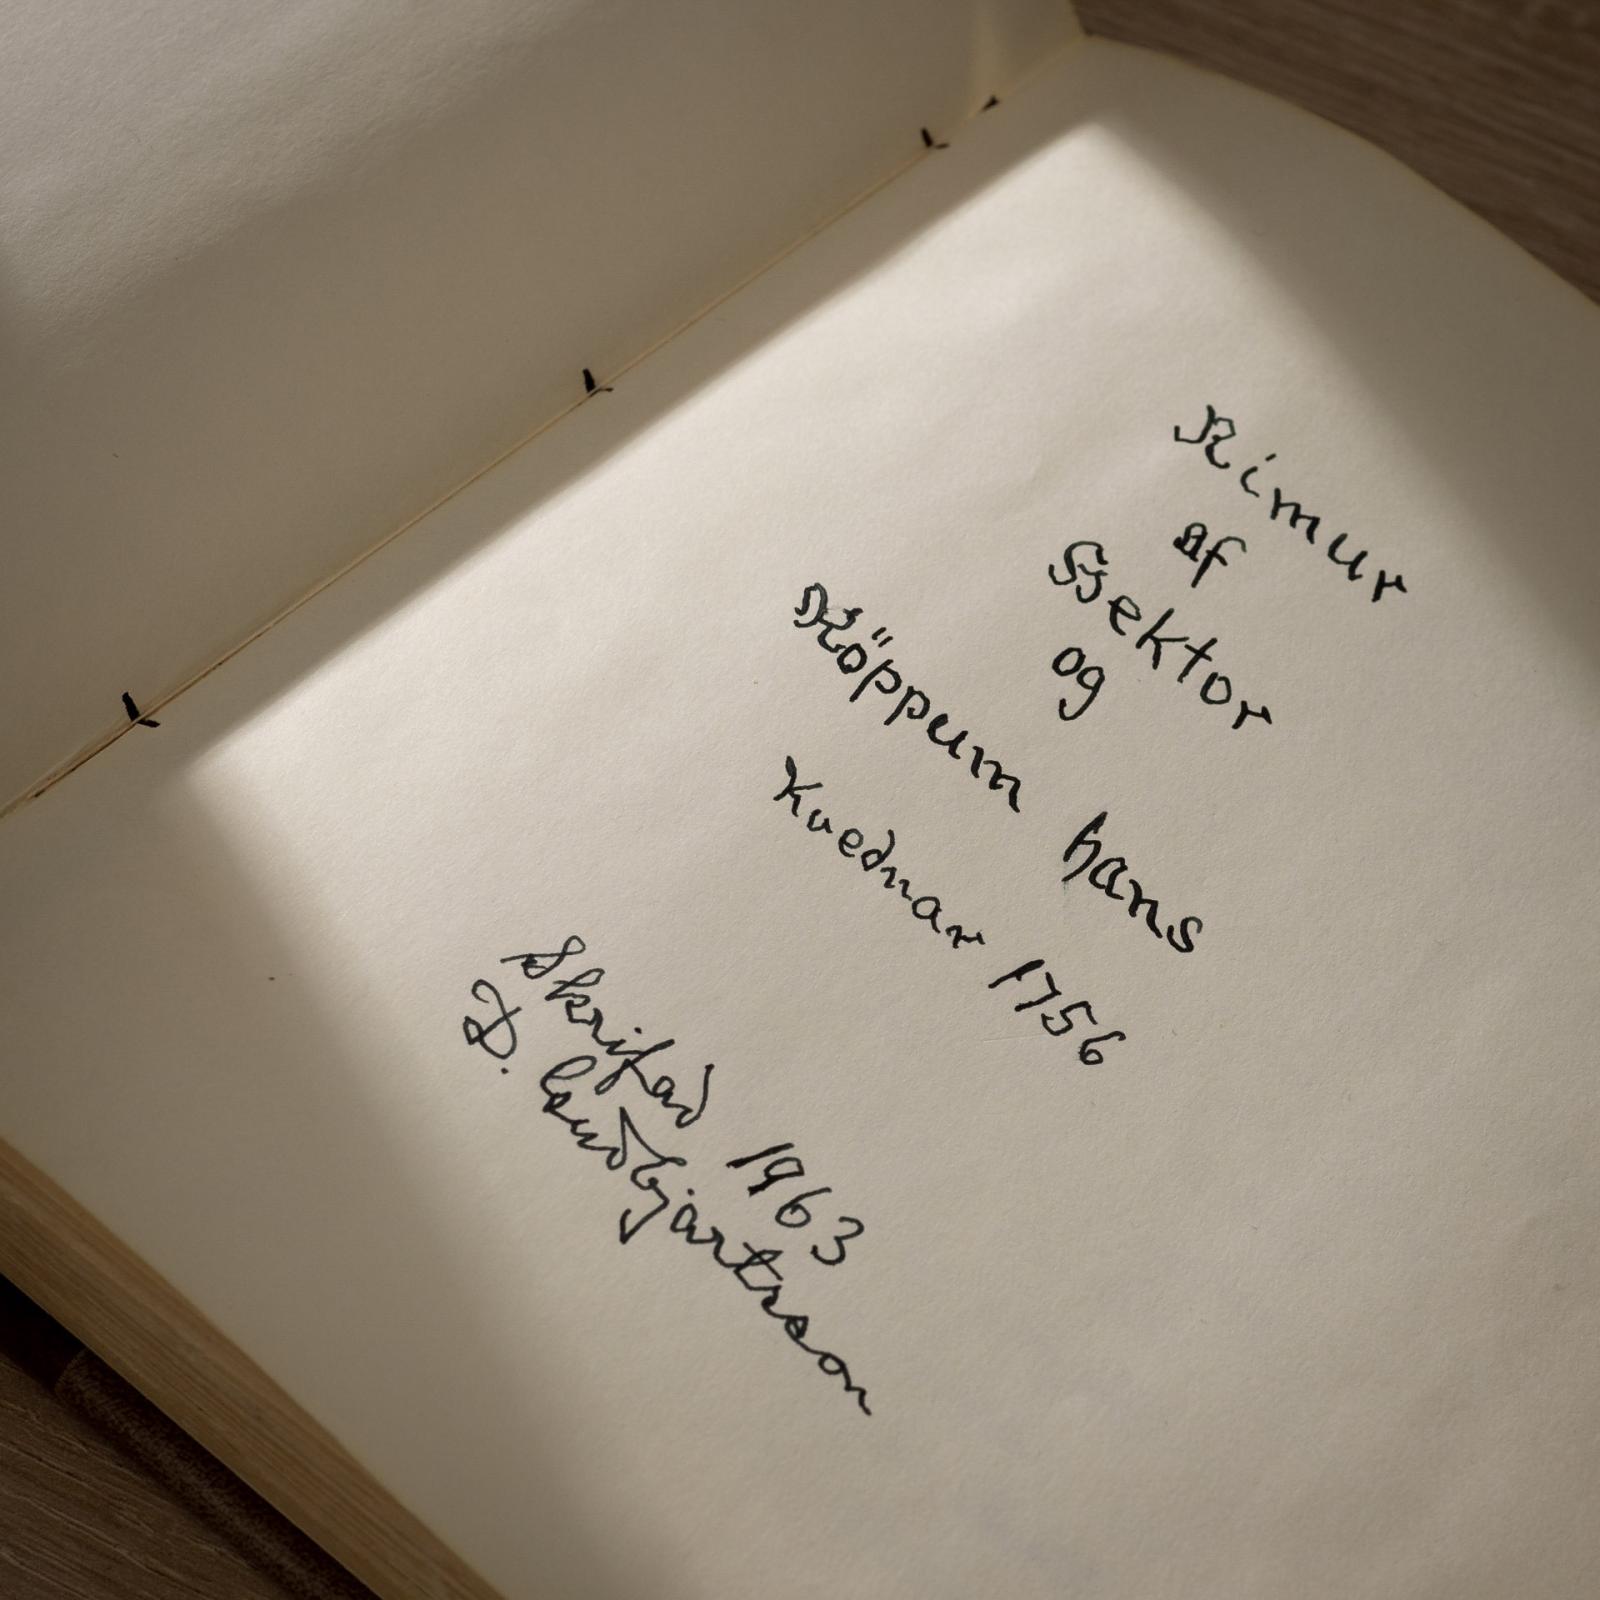 Rímur
af
Hektor
og
Köppum hans
Kvednar 1756
Skrifad 1963
D. Guðbjartsson